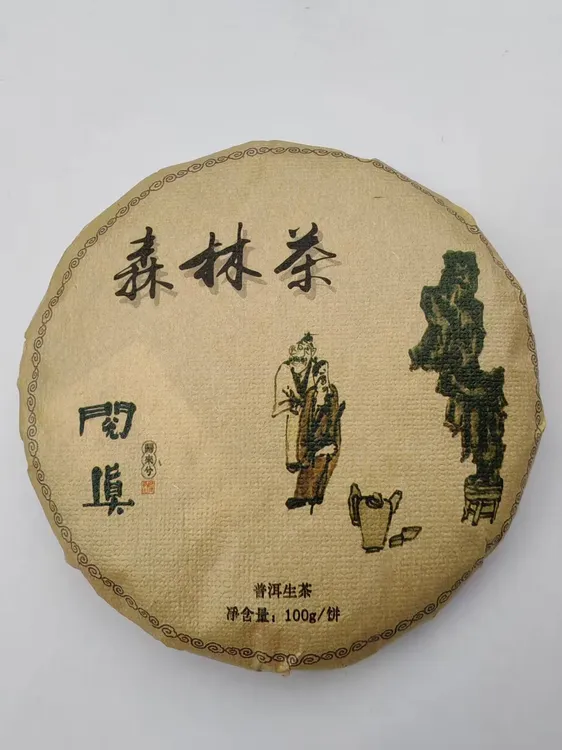 森林茶
閱真
歸来兮
普洱生茶
净含量：100g/饼